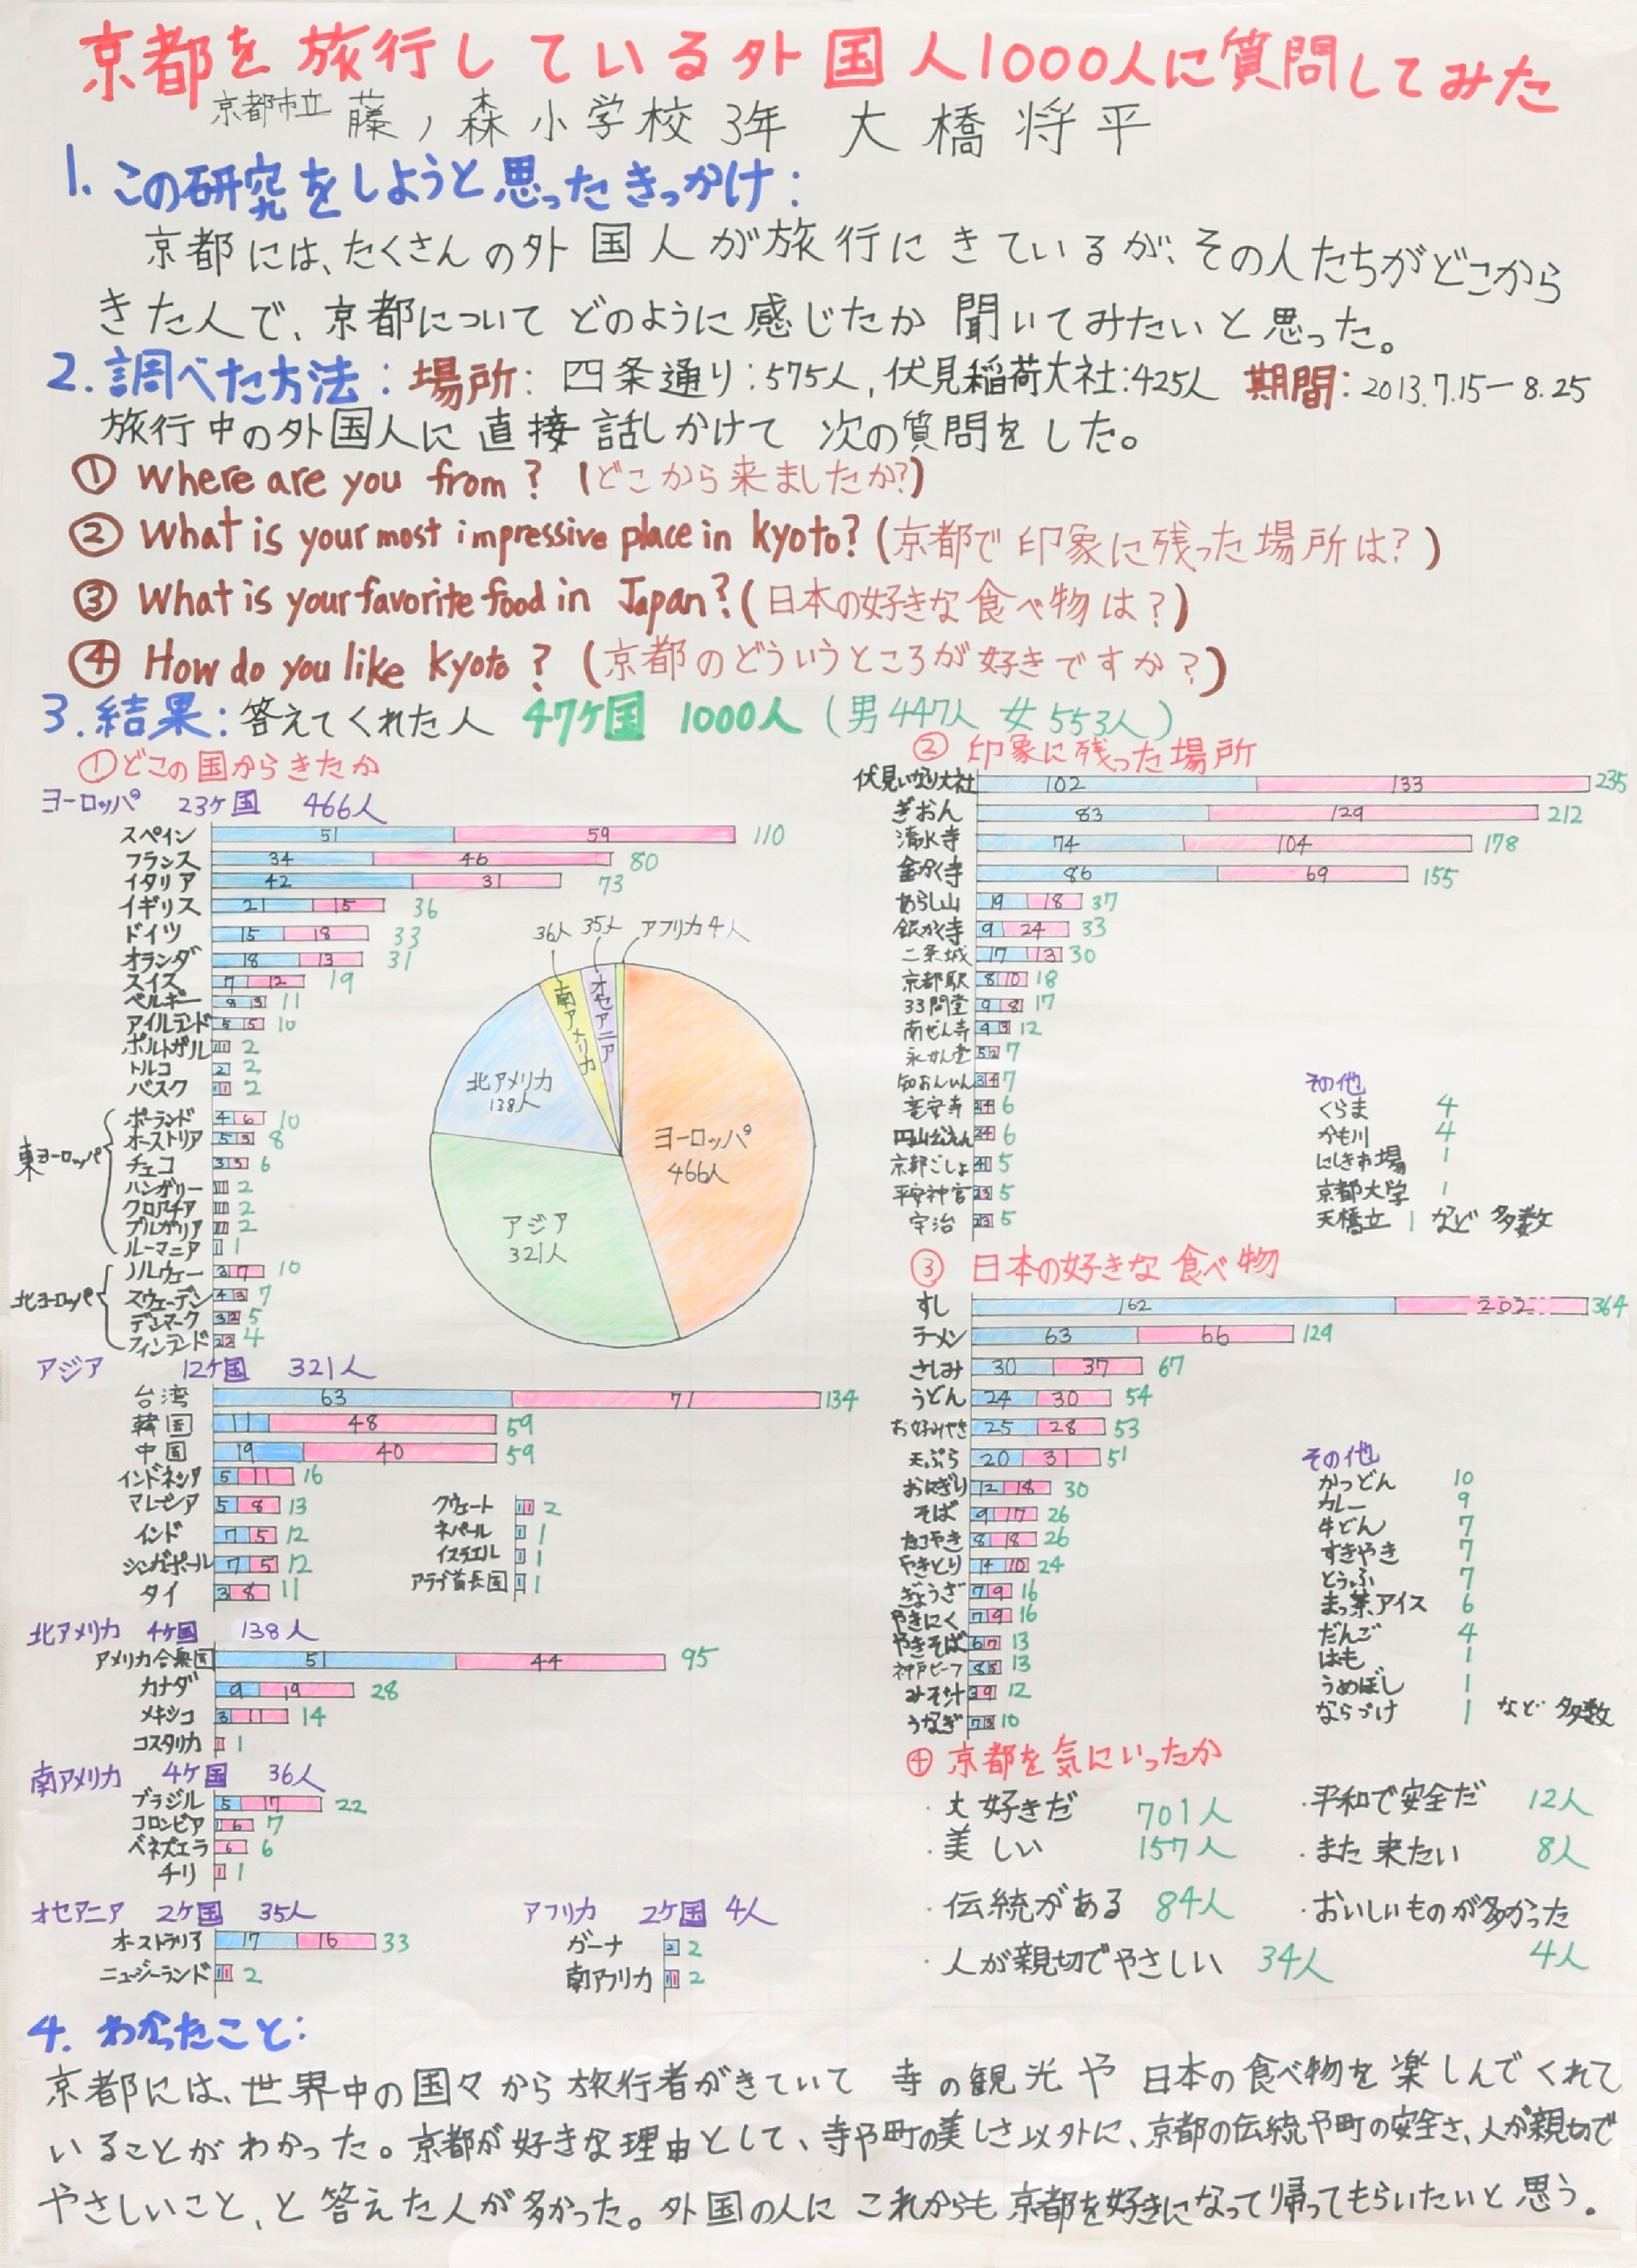 京都を旅行している外国人1000人に質問してみた
京都市立 藤ノ森小学校 3年 大橋将平
1. この研究をしようと思ったきっかけ：
京都には、たくさんの外国人が旅行にきているが、その人たちがどこから
きた人で、京都についてどのように感じたか聞いてみたいと思った。
2. 調べた方法：場所：四条通り：575人, 伏見稲荷大社：425人 期間：2013.7.15－8.25
旅行中の外国人に直接話しかけて次の質問をした。
① Where are you from? (どこから来ましたか?)
② What is your most impressive place in Kyoto? (京都で印象に残った場所は?)
③ What is your favorite food in Japan? (日本の好きな食べ物は?)
④ How do you like Kyoto? (京都のどういうところが好きですか?)
3. 結果：答えてくれた人 47ケ国 1000人 (男447人 女553人)
①どこの国からきたか
ヨーロッパ 23ケ国 466人
スペイン 51 59 110
フランス 34 46 80
イタリア 42 31 73
イギリス 21 15 36
ドイツ 15 18 33
オランダ 18 13 31
スイス 7 12 19
ベルギー 8 3 11
アイルランド 5 5 10
ポルトガル 1 1 2
トルコ 2 2
バスク 1 1 2
東ヨーロッパ
ポーランド 4 6 10
オーストリア 5 3 8
チェコ 3 3 6
ハンガリー 1 1 2
クロアチア 1 1 2
ブルガリア 1 1 2
ルーマニア 1 1
北ヨーロッパ
ノルウェー 3 7 10
スウェーデン 4 3 7
デンマーク 3 2 5
フィンランド 2 2 4
36人 35人 アフリカ 4人
南アメリカ
オセアニア
北アメリカ
138人
ヨーロッパ
466人
アジア
321人
アジア 12ケ国 321人
台湾 63 71 134
韓国 11 48 59
中国 19 40 59
インドネシア 5 11 16
マレーシア 5 8 13
インド 7 5 12
シンガポール 7 5 12
タイ 3 8 11
クウェート 1 1 2
ネパール 1 1
イスラエル 1 1
アラブ首長国 1 1
北アメリカ 4ケ国 138人
アメリカ合衆国 51 44 95
カナダ 9 19 28
メキシコ 3 11 14
コスタリカ 1 1
南アメリカ 4ケ国 36人
ブラジル 5 17 22
コロンビア 1 6 7
ベネズエラ 6 6
チリ 1 1
オセアニア 2ケ国 35人
オーストラリア 17 16 33
ニュージーランド 1 1 2
アフリカ 2ケ国 4人
ガーナ 2 2
南アフリカ 1 1 2
② 印象に残った場所
伏見いなり大社 102 133 235
ぎおん 83 129 212
清水寺 74 104 178
金かく寺 86 69 155
あらし山 19 18 37
銀かく寺 9 24 33
二条城 17 13 30
京都駅 8 10 18
33間堂 9 8 17
南ぜん寺 9 3 12
永かん堂 5 2 7
知おんいん 3 4 7
竜安寺 2 4 6
円山公えん 2 4 6
京都ごしょ 4 1 5
平安神宮 2 3 5
宇治 2 3 5
その他
くらま 4
かも川 4
にしき市場 1
京都大学 1
天橋立 1 など 多数
③ 日本の好きな食べ物
すし 162 202 364
ラーメン 63 66 129
さしみ 30 37 67
うどん 24 30 54
お好みやき 25 28 53
天ぷら 20 31 51
おにぎり 12 18 30
そば 9 17 26
たこやき 8 18 26
やきとり 14 10 24
ぎょうざ 7 9 16
やきにく 7 9 16
やきそば 6 7 13
神戸ビーフ 8 5 13
みそ汁 3 9 12
うなぎ 7 3 10
その他
かつどん 10
カレー 9
牛どん 7
すきやき 7
とうふ 7
まっ茶アイス 6
だんご 4
はも 1
うめぼし 1
ならづけ 1 など 多数
④ 京都を気にいったか
・大好きだ 701人
・美しい 157人
・伝統がある 84人
・人が親切でやさしい 34人
・平和で安全だ 12人
・また来たい 8人
・おいしいものが多かった
4人
4. わかったこと：
京都には、世界中の国々から旅行者がきていて 寺の観光や 日本の食べ物を楽しんでくれて
いることがわかった。京都が好きな理由として、寺や町の美しさ以外に、京都の伝統や町の安全さ、人が親切で
やさしいこと、と答えた人が多かった。外国の人に これからも京都を好きになって帰ってもらいたいと思う。